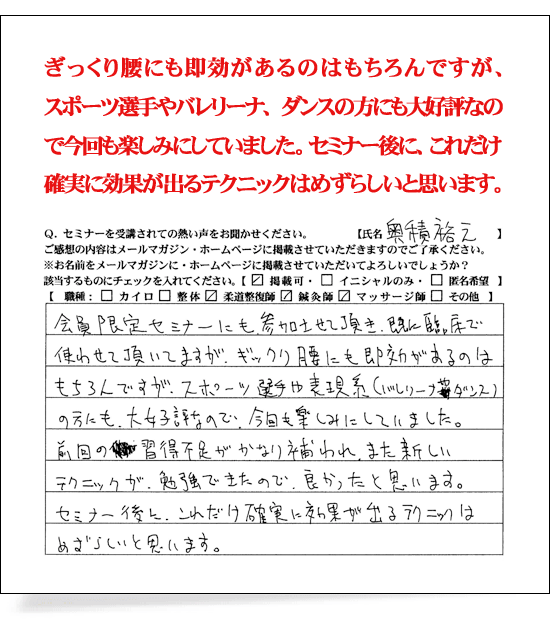 ぎっくり腰にも即効があるのはもちろんですが、
スポーツ選手やバレリーナ、ダンスの方にも大好評なの
で今回も楽しみにしていました。セミナー後に、これだけ
確実に効果が出るテクニックはめずらしいと思います。
Q．セミナーを受講されての熱い声をお聞かせください。 【氏名 奥積裕元 】
ご感想の内容はメールマガジン・ホームページに掲載させていただきますのでご了承ください。
※お名前をメールマガジンに・ホームページに掲載させていただいてよろしいでしょうか？
該当するものにチェックを入れてください。【 ☑ 掲載可・ □ イニシャルのみ・ □ 匿名希望 】
【 職種： □ カイロ □ 整体 ☑ 柔道整復師 ☑ 鍼灸師 ☑ マッサージ師 □ その他 】
会員限定セミナーにも、参加させて頂き、既に臨床で
使わせて頂いてますが、ギックリ腰にも即効があるのは
もちろんですが、スポーツ選手や表現系(バレリーナ ダンス)
の方にも、大好評なので、今回も楽しみにしていました。
前回の 習得不足がかなり補われ、また新しい
テクニックが、勉強できたので、良かったと思います。
セミナー後に、これだけ確実に効果が出るテクニックは
めずらしいと思います。